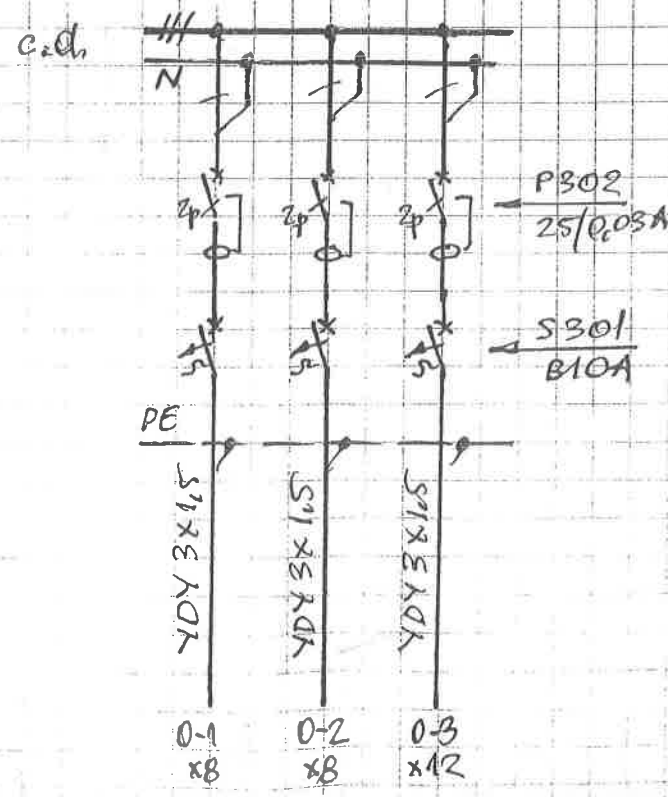 c.d.
N
2p
2p
2p
P302
25/0,03A
S301
B10A
PE
YDY 3x1,5
YDY 3x1,5
YDY 3x1,5
0-1
x8
0-2
x8
0-3
x12